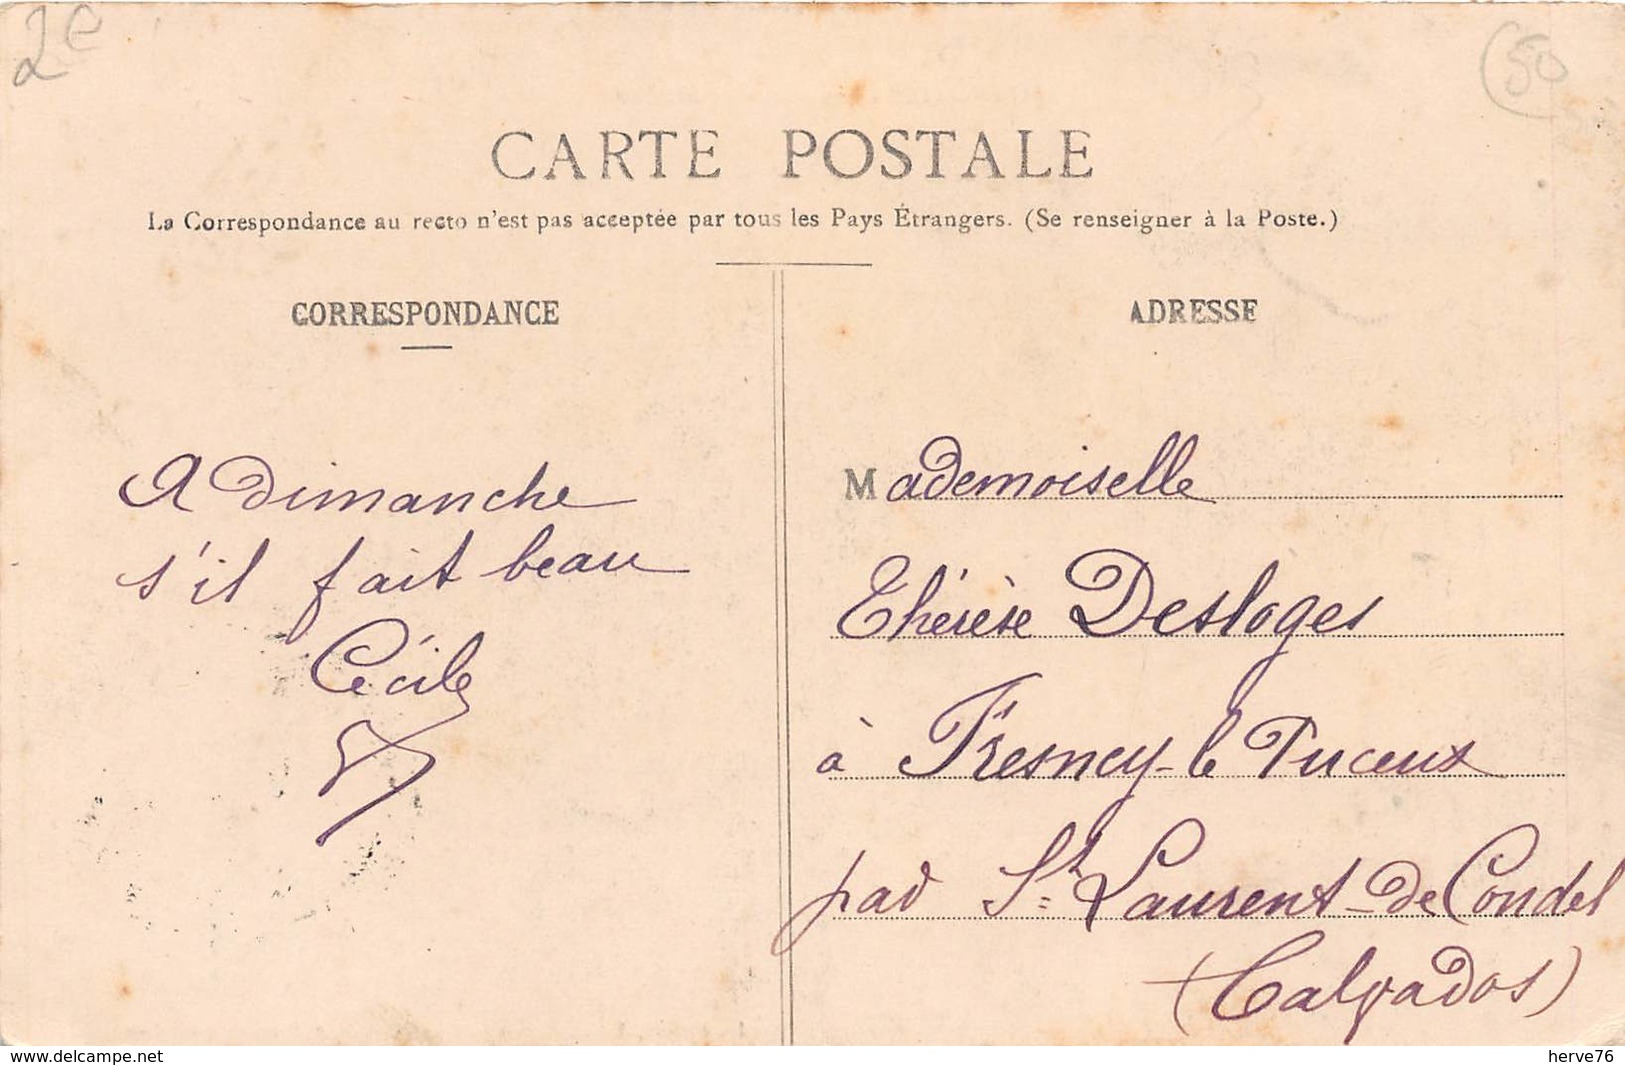 2e
(50
CARTE POSTALE
La Correspondance au recto n'est pas acceptée par tous les Pays Étrangers. (Se renseigner à la Poste.)
CORRESPONDANCE
A dimanche
s'il fait beau
Cécile
ADRESSE
Mademoiselle
Thérèse Desloges
à Fresney-le Puceux
par St Laurent-de Condel
(Calvados)
delcampe.net
herve76